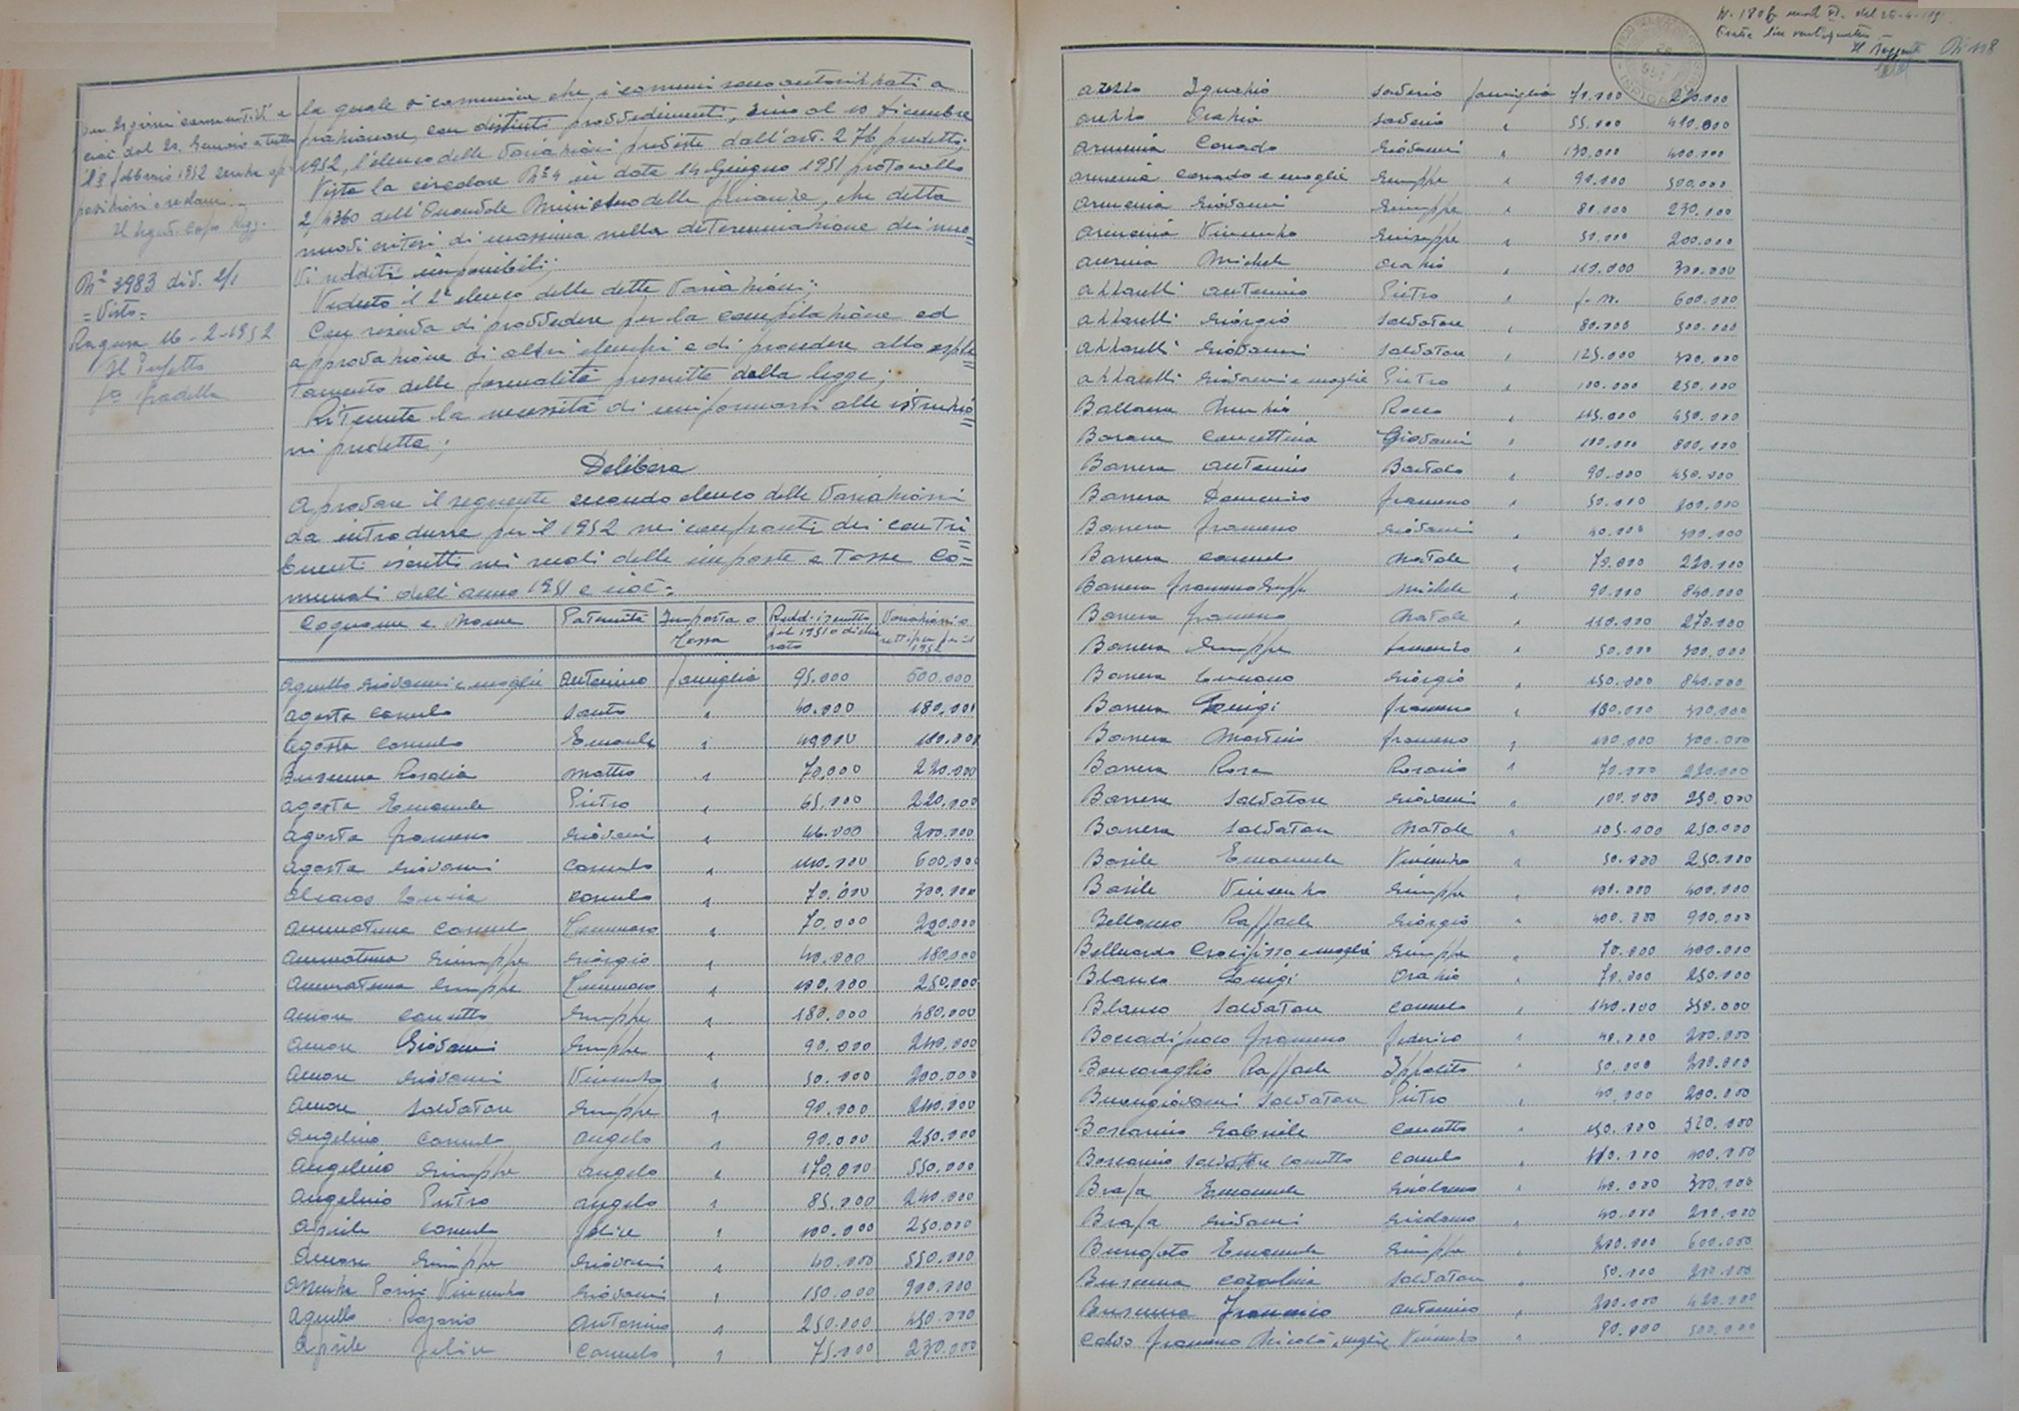 la quale si comunica che i comuni sono autorizzati a
frazionare, con distinti provvedimenti, sino al 10 dicembre
1952, l'elenco delle variazioni previste dall'art. 276 predetto;
Vista la circolare N° 4 in data 14 Giugno 1951 protocollo
2/4360 dell'Onorevole Ministero delle finanze, che detta
nuovi criteri di massima nella determinazione dei nuo=
vi redditi imponibili;
Veduto il 2° elenco delle dette variazioni;
Con riserva di provvedere per la compilazione ed
approvazione di altri elenchi e di procedere allo esple=
tamento delle formalità prescritte dalla legge;
Ritenuta la necessità di uniformarsi alle istruzio=
ni predette;
Delibera
Approvare il seguente secondo elenco delle variazioni
da introdurre per il 1952 nei confronti dei contri=
buenti iscritti nei ruoli delle imposte e tasse co=
munali dell'anno 1951 e cioè:
N° 3983 div. 2/1
= Visto =
Ragusa 16-2-1952
Il Prefetto
Cognome e Nome Paternità Imposta o Tassa
Agnello Giovanni e moglie Antonino famiglia 95.000 500.000
Agosta Carmelo Santo " 40.000 180.000
Agosta Carmelo Emanuele " 180.000
Buscema Rosalia Matteo " 70.000 220.000
Agosta Emanuele Pietro " 65.000 220.000
Agosta Francesco Giovanni " 46.000 200.000
Agosta Giovanni Carmelo " 140.000 600.000
Carmelo " 70.000 300.000
Ammatuna Carmelo " 70.000 220.000
Ammatuna Giuseppe Giorgio " 40.000 180.000
Ammatuna Giuseppe " 100.000 250.000
Amore Concetto Giuseppe " 180.000 480.000
Amore Giovanni Giuseppe " 90.000 240.000
Amore Giovanni Vincenzo " 50.000 200.000
Amore Salvatore Giuseppe " 90.000 240.000
Angelino Carmelo Angelo " 90.000 250.000
Angelino Giuseppe Angelo " 170.000 550.000
Angelino Pietro Angelo " 85.000 240.000
Aprile Carmelo Felice " 100.000 250.000
Amore Giuseppe Giovanni " 40.000 550.000
Vincenzo Giovanni " 150.000 900.000
Agnello Rosario Antonino " 250.000 450.000
Aprile Felice Carmelo " 75.000 230.000
N° 118
Arezzo Ignazio Saverio famiglia 70.000 220.000
Arezzo Orazio Saverio " 55.000 410.000
Armenia Corrado Giovanni " 130.000 400.000
Armenia Corrado e moglie Giuseppe " 90.000 500.000
Armenia Giovanni Giuseppe " 80.000 230.000
Armenia Vincenzo Giuseppe " 50.000 200.000
Michele Orazio " 110.000 300.000
Azzarelli Antonino Pietro " 600.000
Azzarelli Giorgio Salvatore " 80.000 500.000
Azzarelli Giovanni Salvatore " 125.000 300.000
Azzarelli Giovanni e moglie Pietro " 100.000 250.000
Nunzio Rocco " 115.000 450.000
Concettina Giovanni " 100.000 800.000
Barrera Antonino Bartolo " 90.000 450.000
Barrera Domenico Francesco " 50.000 200.000
Barrera Francesco Giovanni " 40.000 300.000
Barrera Carmelo Natale " 70.000 220.000
Barrera Francesco Giuseppe Michele " 90.000 840.000
Barrera Francesco Natale " 110.000 270.000
Barrera Giuseppe " 50.000 300.000
Barrera Giorgio " 150.000 840.000
Barrera Luigi Francesco " 180.000 300.000
Barrera Martino Francesco " 100.000 300.000
Barrera Rosa Rosario " 70.000 220.000
Barrera Salvatore Giovanni " 100.000 250.000
Barrera Salvatore Natale " 105.000 250.000
Basile Emanuele Vincenzo " 50.000 250.000
Basile Vincenzo Giuseppe " 100.000 400.000
Bellomo Raffaele Giorgio " 400.000 900.000
Belluardo Crocifisso e moglie Giuseppe " 70.000 400.000
Blanco Luigi Orazio " 70.000 250.000
Blanco Salvatore Carmelo " 140.000 350.000
Boccadifuoco Francesco Federico " 40.000 200.000
Boncoraglio Raffaele Ippolito " 50.000 200.000
Buongiovanni Salvatore Pietro " 40.000 200.000
Boscarino Gabriele Concetto " 150.000 520.000
Boscarino Salvatore Concetto Carmelo " 110.000 400.000
Brafa Emanuele Girolamo " 40.000 300.000
Brafa Giovanni Girolamo " 40.000 200.000
Emanuele Giuseppe " 200.000 600.000
Buscema Carolina Salvatore " 50.000 200.000
Buscema Francesco Antonino " 200.000 420.000
Calvo Francesco Nicolò, moglie Vincenzo " 90.000 500.000